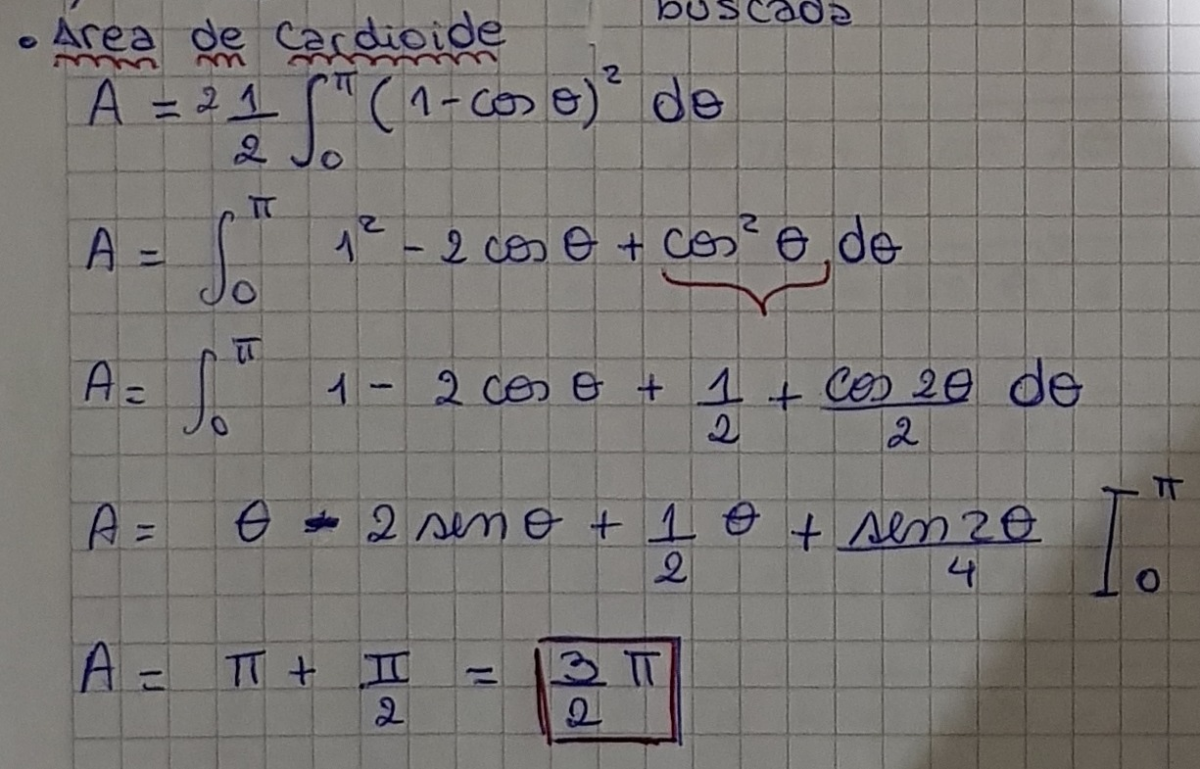 buscada
• Área de Cardioide
A = 2 1/2 ∫₀^π (1 - cos θ)² dθ
A = ∫₀^π 1² - 2 cos θ + cos² θ dθ
A = ∫₀^π 1 - 2 cos θ + 1/2 + cos 2θ/2 dθ
A = θ - 2 sen θ + 1/2 θ + sen 2θ/4 ]₀^π
A = π + π/2 = 3/2 π